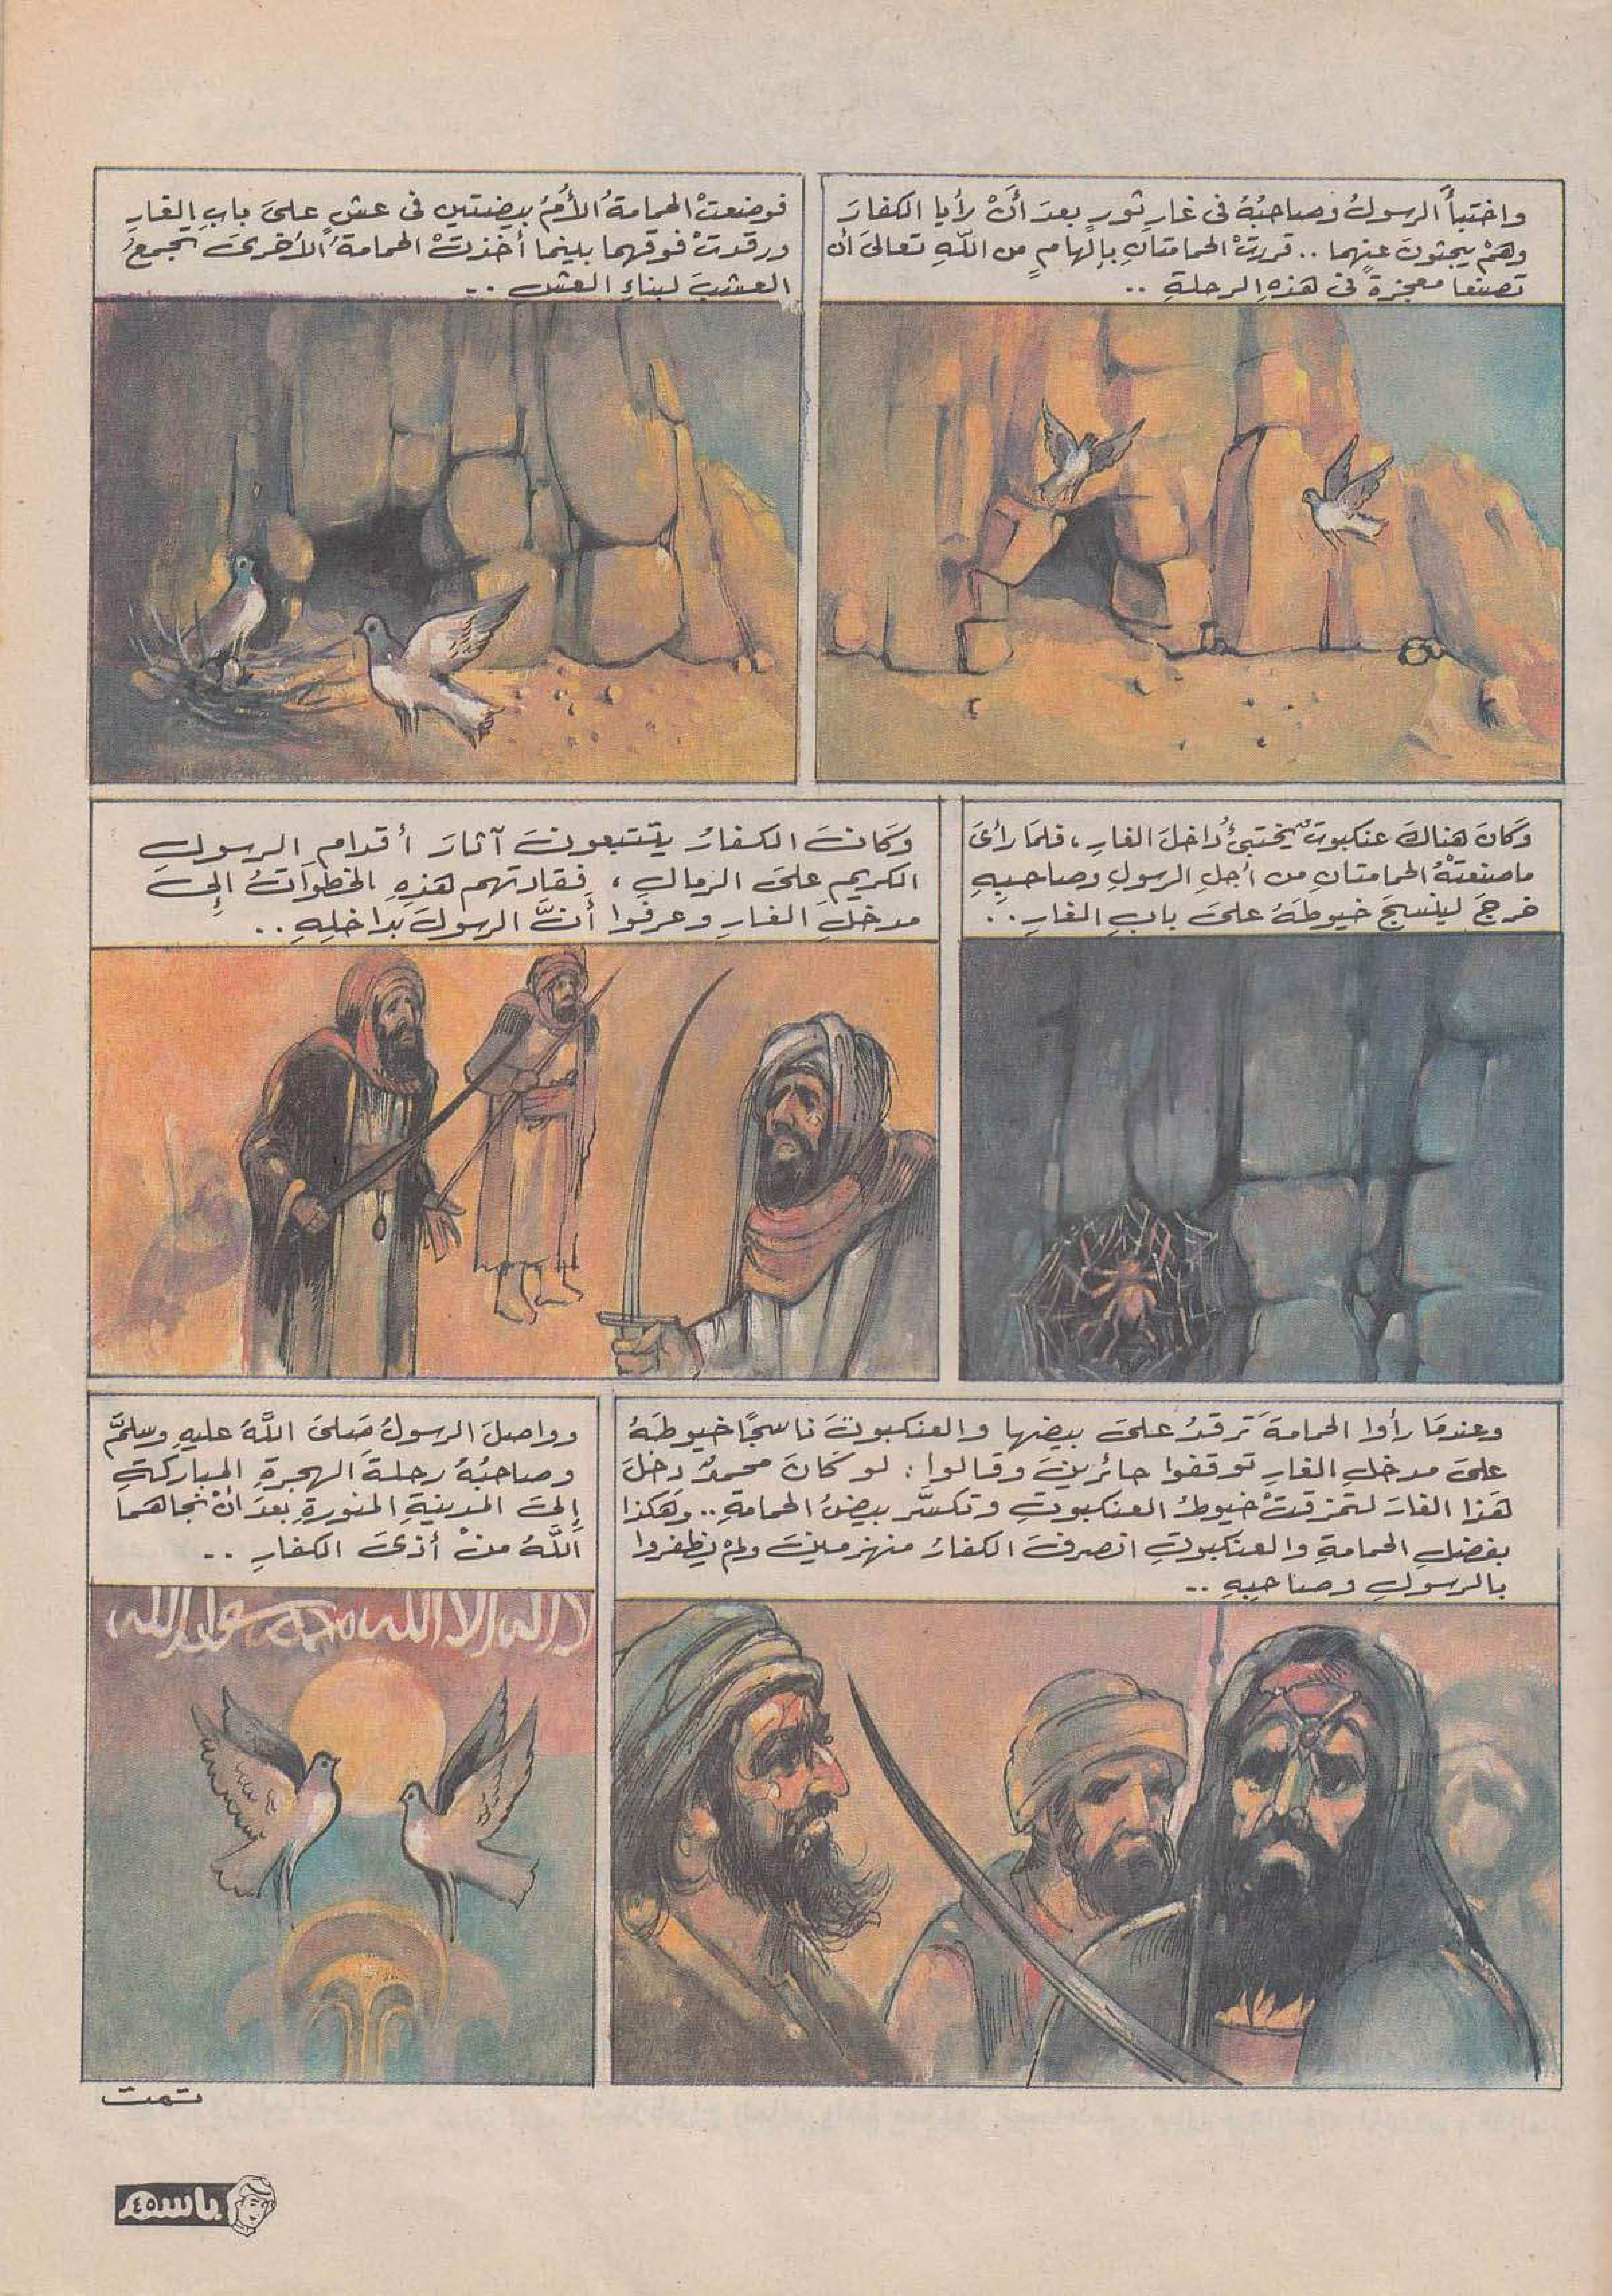 واختبأَ الرسولُ وصاحبُهُ فى غارِ ثورٍ بعدَ أَنْ رأيا الكفارَ
وهمْ يبحثونَ عنهما .. قررتْ الحمامتانِ بإلهامٍ من اللّهِ تعالىَ أن
تصنعا معجزةً فى هذهِ الرحلةِ ..
فوضعتْ الحمامةُ الأُمُ بيضتين فى عشٍ علىَ بابِ الغارِ
ورقدتْ فوقهما بينما أخذتْ الحمامةُ الأخرىَ تجمعُ
العشبَ لبناءِ العش ..
وَكانَ هناكَ عنكبوتٌ يختبئُ داخلَ الغارِ ، فلمَا رأىَ
ما صنعتْهُ الحمامتانِ من أجلِ الرسولِ وصاحبِهِ
خرجَ لينسجَ خيوطَهُ علىَ بابِ الغارِ . .
وَكانَ الكفارُ يتتبعونَ آثارَ أقدامِ الرسولِ
الكريمِ علىَ الرمالِ ، فقادتهم هذهِ الخطواتُ إلىَ
مدخلِ الغارِ وعرفوا أنَّ الرسولَ بداخلِهِ . .
وعندمَا رأوا الحمامةَ ترقدُ علىَ بيضها والعنكبوتَ ناسجًا خيوطَهُ
علىَ مدخلِ الغارِ توقفوا حائرينَ وقالوا : لو كَانَ محمدٌ دخلَ
هَذا الغارَ لتمزقتْ خيوطُ العنكبوتِ وتكسَّر بيضُ الحمامةِ .. وَهَكذا
بفضلِ الحمامةِ والعنكبوتِ انصرفَ الكفارُ منهزمينَ ولمْ يظفروا
بالرسولِ وصاحبِهِ ..
وواصلَ الرسولُ صَلىَ اللَّهُ عليهِ وسلمَّ
وصاحبُهُ رحلةَ الهجرةِ المباركةِ
إلىَ المدينةِ المنورةِ بعدَ أنْ نجاهمَا
اللَّهُ منْ أذىَ الكفارِ ..
لا إله إلا الله محمد رسول الله
تمت
باسم
٤٥